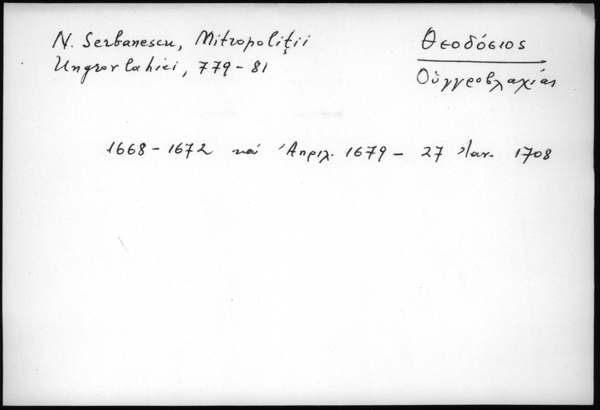 N. Serbanescu, Mitropoliţii
Ungrovlahiei, 779-81
Θεοδόσιος
Οὐγγροβλαχίας
1668-1672 καὶ Ἀπριλ. 1679 - 27 Ἰαν. 1708